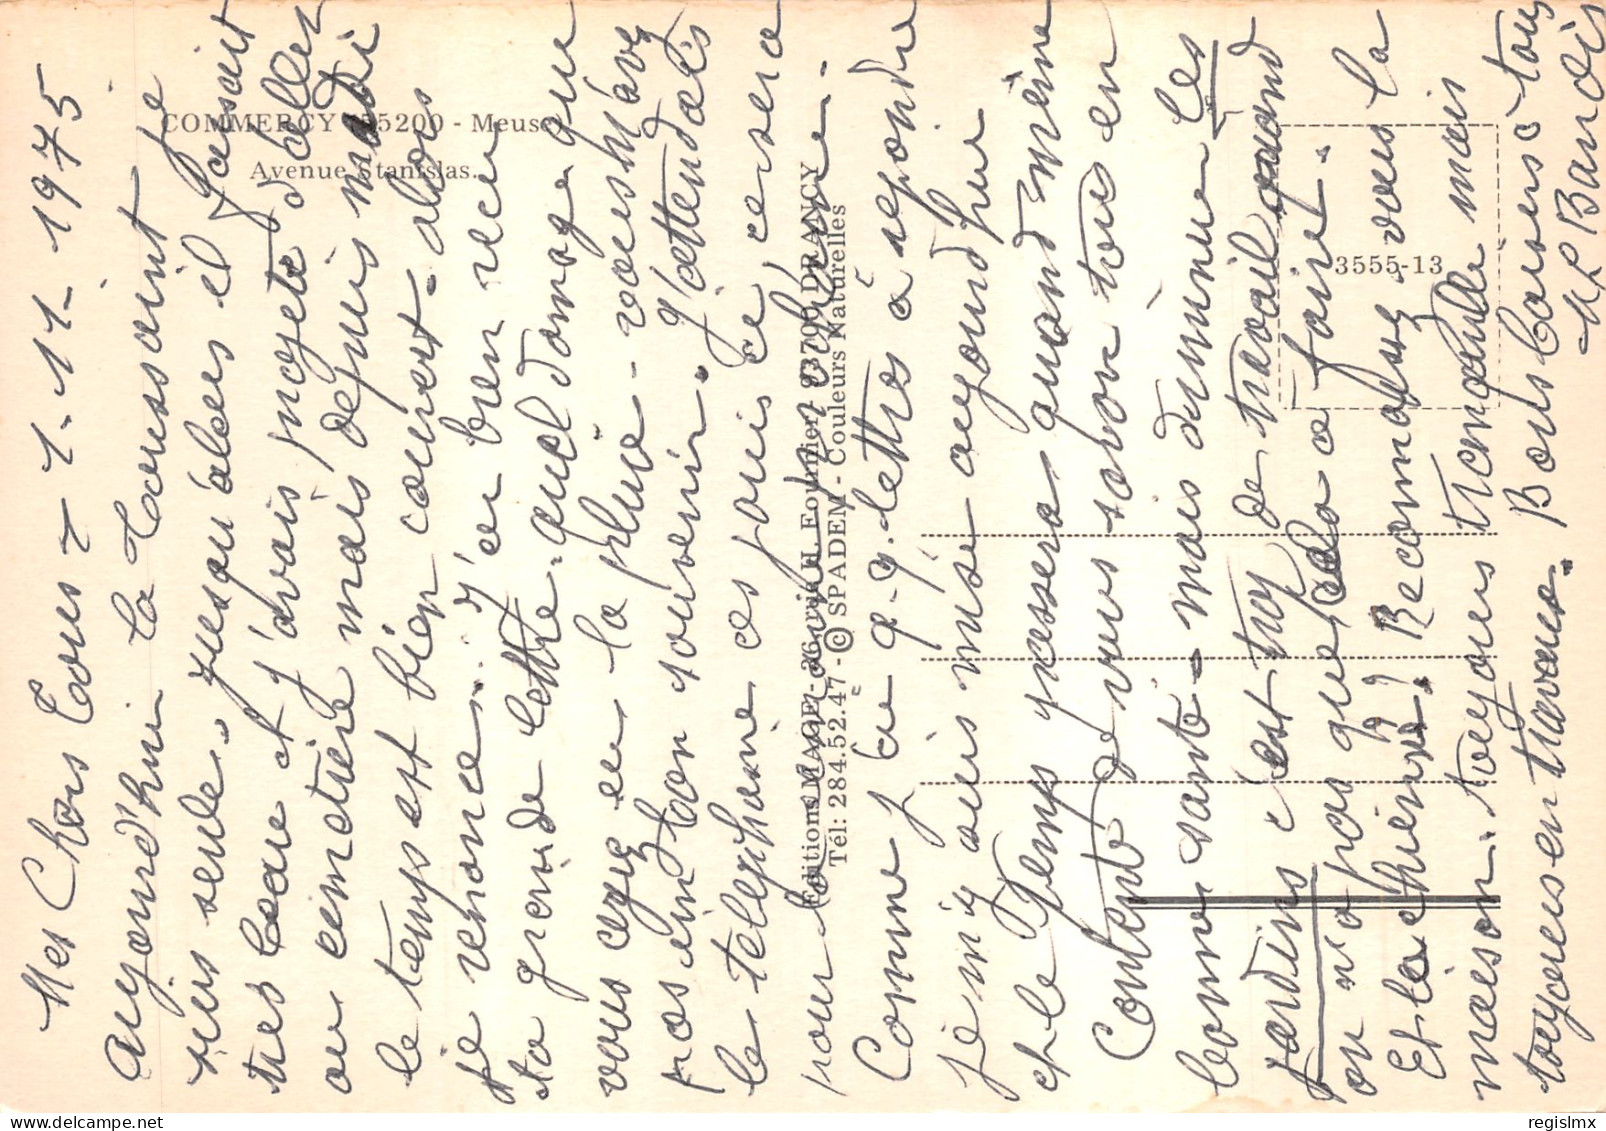 Mes Chers Tous - 1.11.1975
aujourd'hui la Toussaint je
suis seule. jusqu'alors il faisait
tres beau et j'avais projeté d'aller
au cimetière mais depuis midi
le temps est bien couvert - alors
je renonce. J'ai bien reçu
ta grande lettre. quel dommage que
vous ayez eu la pluie - vous n'avez
pas eu bon souvenir. J'attendais
le telephone ces jours ci, ce sera
pour la
Comme j'ai q.q. lettres à repondre
je m'y suis mise aujourd'hui
et le Temps passera quand même
Contente de vous savoir tous en
bonne santé - mais diminuer les
jardins c'est trop de travail quand
on n'a pas que cela a faire.
Et la chienne? Reconnait vous la
maison. toujours tremblante mais
toujours en travaux. Bons baisers à tous
COMMERCY (55200 - Meuse)
Avenue Stanislas.
Editions MAGE - 26, rue H. Fournier - 93700 DRANCY
Tél: 284.52.47 - © SPADEM - Couleurs Naturelles
3555-13
regislmx